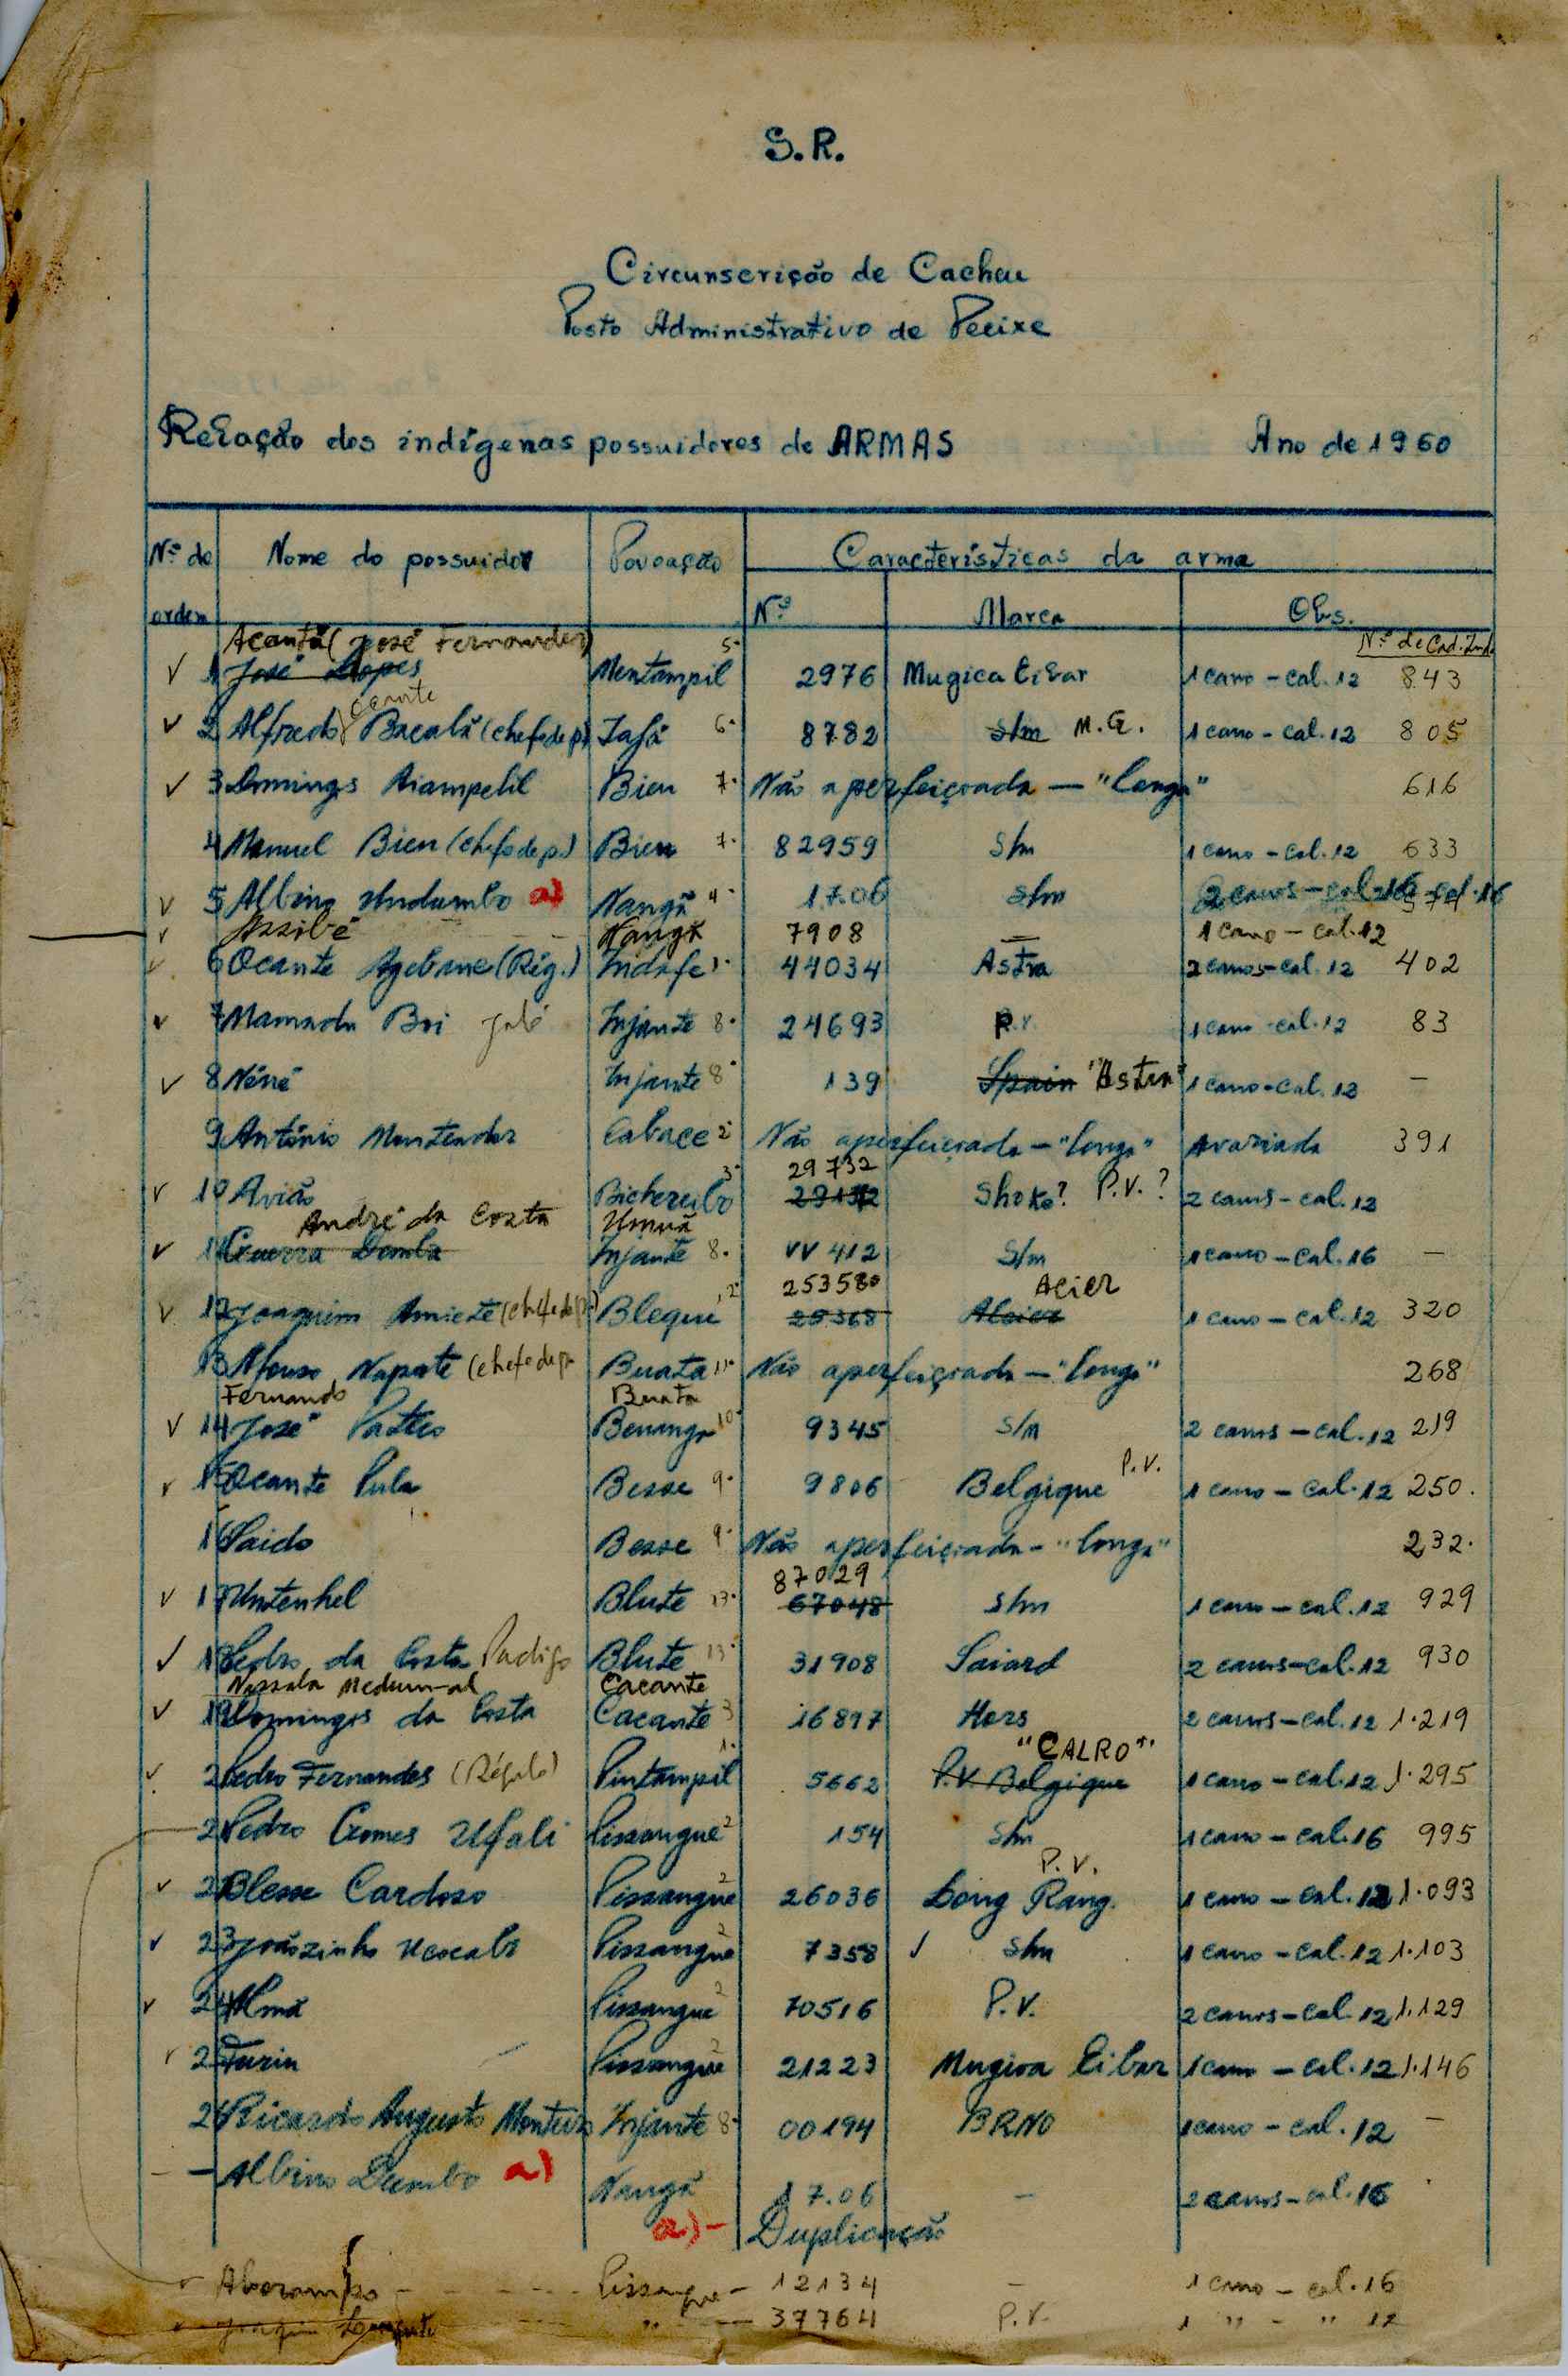 S.R.
Circunscrição de Cacheu
Posto Administrativo de Pecixe
Relação dos indígenas possuidores de ARMAS Ano de 1960
Nº de ordem Nome do possuidor Povoação Características da arma
Nº Marca Obs.
Nº de Cad. Ind.
Acantã (José Fernandes)
V 1 José Lopes Mentampil 5. 2976 Mugica Eibar 1 cano - cal. 12 843
Ocante
V 2 Alfredo Bacalã (chefe de p.) Jafá 6. 8782 s/m M.G. 1 cano - cal. 12 805
V 3 Domingos Biampelil Bien 7. Não aperfeiçoada — "longa" 616
4 Manuel Bien (chefe de p.) Bien 7. 82959 s/m 1 cano - cal. 12 633
V 5 Albino a) Nangã 4. 17.06 s/m 2 canos - cal. 16
V Assibé Nangã 7908 — 1 cano - cal. 12
V 6 Ocante (Rég.) 1. 44034 Astra 2 canos - cal. 12 402
V 7 Mamadu Boi Jaló Injante 8. 24693 P.V. 1 cano - cal. 12 83
V 8 Néné Injante 8. 139 Spain "Astra" 1 cano - cal. 12 —
9 António Cabace 2. Não aperfeiçoada — "longa" Avariada 391
3. 29732
V 10 Avião 29132 Shoke? P.V.? 2 canos - cal. 12
André da Costa
V 11 Guerra Demba Injante 8. VV 412 s/m 1 cano - cal. 16 —
253580 Acier
V 12 Joaquim (chefe de p.) Blequé 12. 25368 1 cano - cal. 12 320
13 Afonso Napate (chefe de p. Buata 11. Não aperfeiçoada — "longa" 268
Fernando Buata
V 14 José 10. 9345 s/m 2 canos - cal. 12 219
V 15 Ocante Pula Besse 9. 9806 Belgique P.V. 1 cano - cal. 12 250.
16 Saido Besse 9. Não aperfeiçoada - "longa" 232.
87029
V 17 Untenhel Blute 13. 67048 s/m 1 cano - cal. 12 929
V 18 Pedro da Costa Blute 13. 31908 Saiard 2 canos - cal. 12 930
Nassala Medum-al Cacante
V 19 Domingos da Costa Cacante 3 16897 Hers 2 canos - cal. 12 1.219
"CALRO"
V 20 Pedro Fernandes (Régulo) Pintampil 1. 5662 P.V. Belgique 1 cano - cal. 12 1.295
21 Pedro Gomes Ufali Pissangue 2 154 s/m 1 cano - cal. 16 995
P.V.
V 22 Blesse Cardoso Pissangue 2 26036 Long Rang. 1 cano - cal. 12 1.093
V 23 Joãozinho Ucocalo Pissangue 2 7358 V s/m 1 cano - cal. 12 1.103
V 24 Almã Pissangue 2 70516 P.V. 2 canos - cal. 12 1.129
V 25 Turin Pissangue 2 21223 Mugica Eibar 1 cano - cal. 12 1.146
26 Ricardo Augusto Monteiro Injante 8. 00194 BRNO 1 cano - cal. 12 —
— Albino Dumbo a) Nangã 17.06 — 2 canos - cal. 16
a) — Duplicação
Pissangue — 12134 — 1 cano - cal. 16
Joaquim " — 37764 P.V. 1 " - " 12